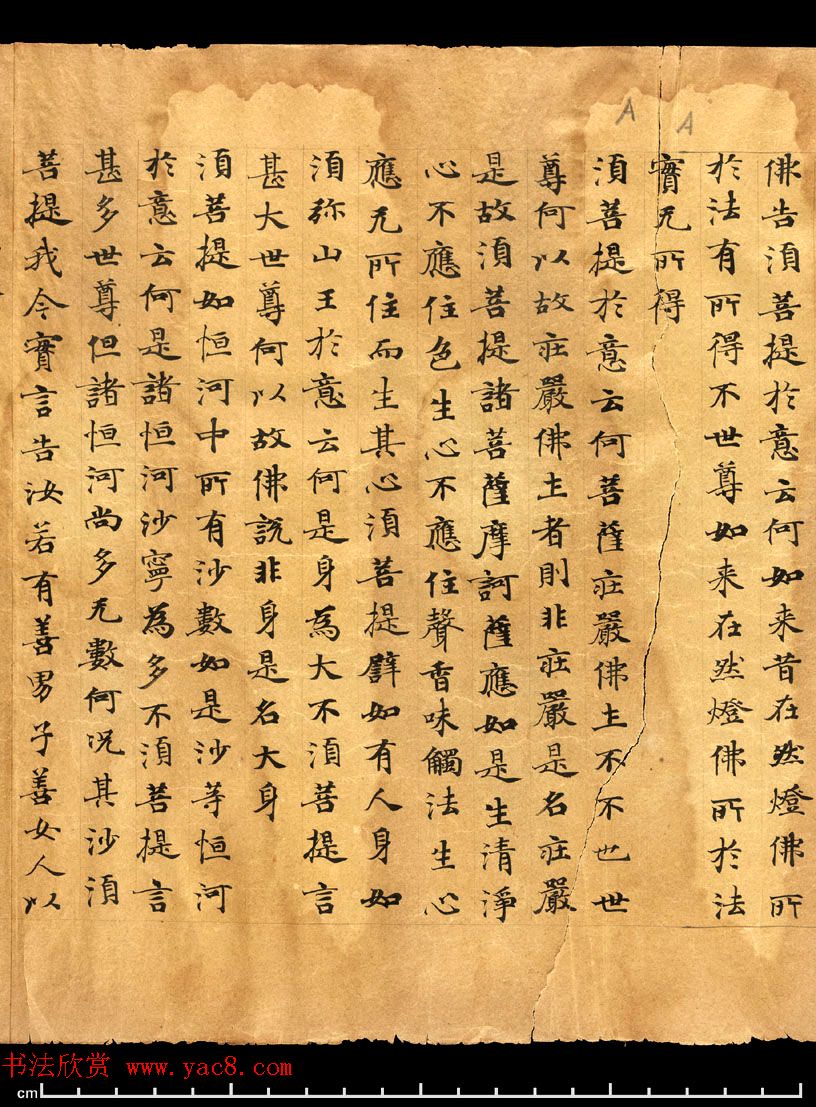 佛告湏菩提於意云何如来昔在然燈佛所
於法有所得不世尊如来在然燈佛所於法
實无所得
湏菩提於意云何菩薩庄嚴佛土不不也世
尊何以故庄嚴佛土者則非庄嚴是名庄嚴
是故湏菩提諸菩薩摩訶薩應如是生清淨
心不應住色生心不應住聲香味觸法生心
應无所住而生其心湏菩提譬如有人身如
湏弥山王於意云何是身為大不湏菩提言
甚大世尊何以故佛説非身是名大身
湏菩提如恒河中所有沙數如是沙等恒河
於意云何是諸恒河沙寧為多不湏菩提言
甚多世尊但諸恒河尚多无數何况其沙湏
菩提我今實言告汝若有善男子善女人以
A
A
书法欣赏 www.yac8.com
cm